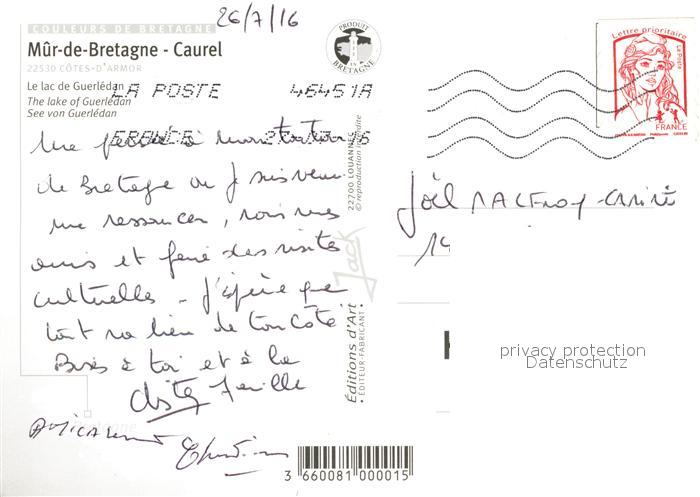 26/7/16
COULEURS DE BRETAGNE
Mûr-de-Bretagne - Caurel
22530 CÔTES-D'ARMOR
Le lac de Guerlédan
The lake of Guerlédan
See von Guerlédan
LA POSTE 46451A
FRANCE
PRODUIT EN BRETAGNE
Lettre prioritaire
La Poste
FRANCE
Une pensée à mon
de Bretagne où je suis venu
me ressourcer, voir mes
amis et faire des visites
culturelles - J'espère que
tout va bien de ton côté
Bises à toi et à la
famille
Amicalement
Joël
14
22700 LOUANNEC
© reproduction interdite
Jack
Éditions d'Art
ÉDITEUR-FABRICANT
privacy protection
Datenschutz
3 660081 000015